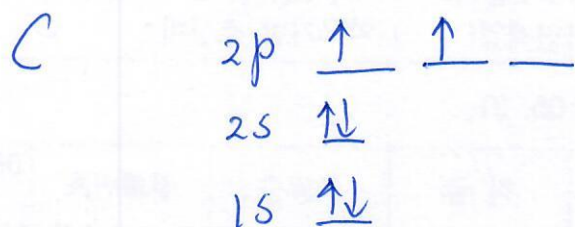 C 2p ↑ ↑
2s ↑↓
1s ↑↓